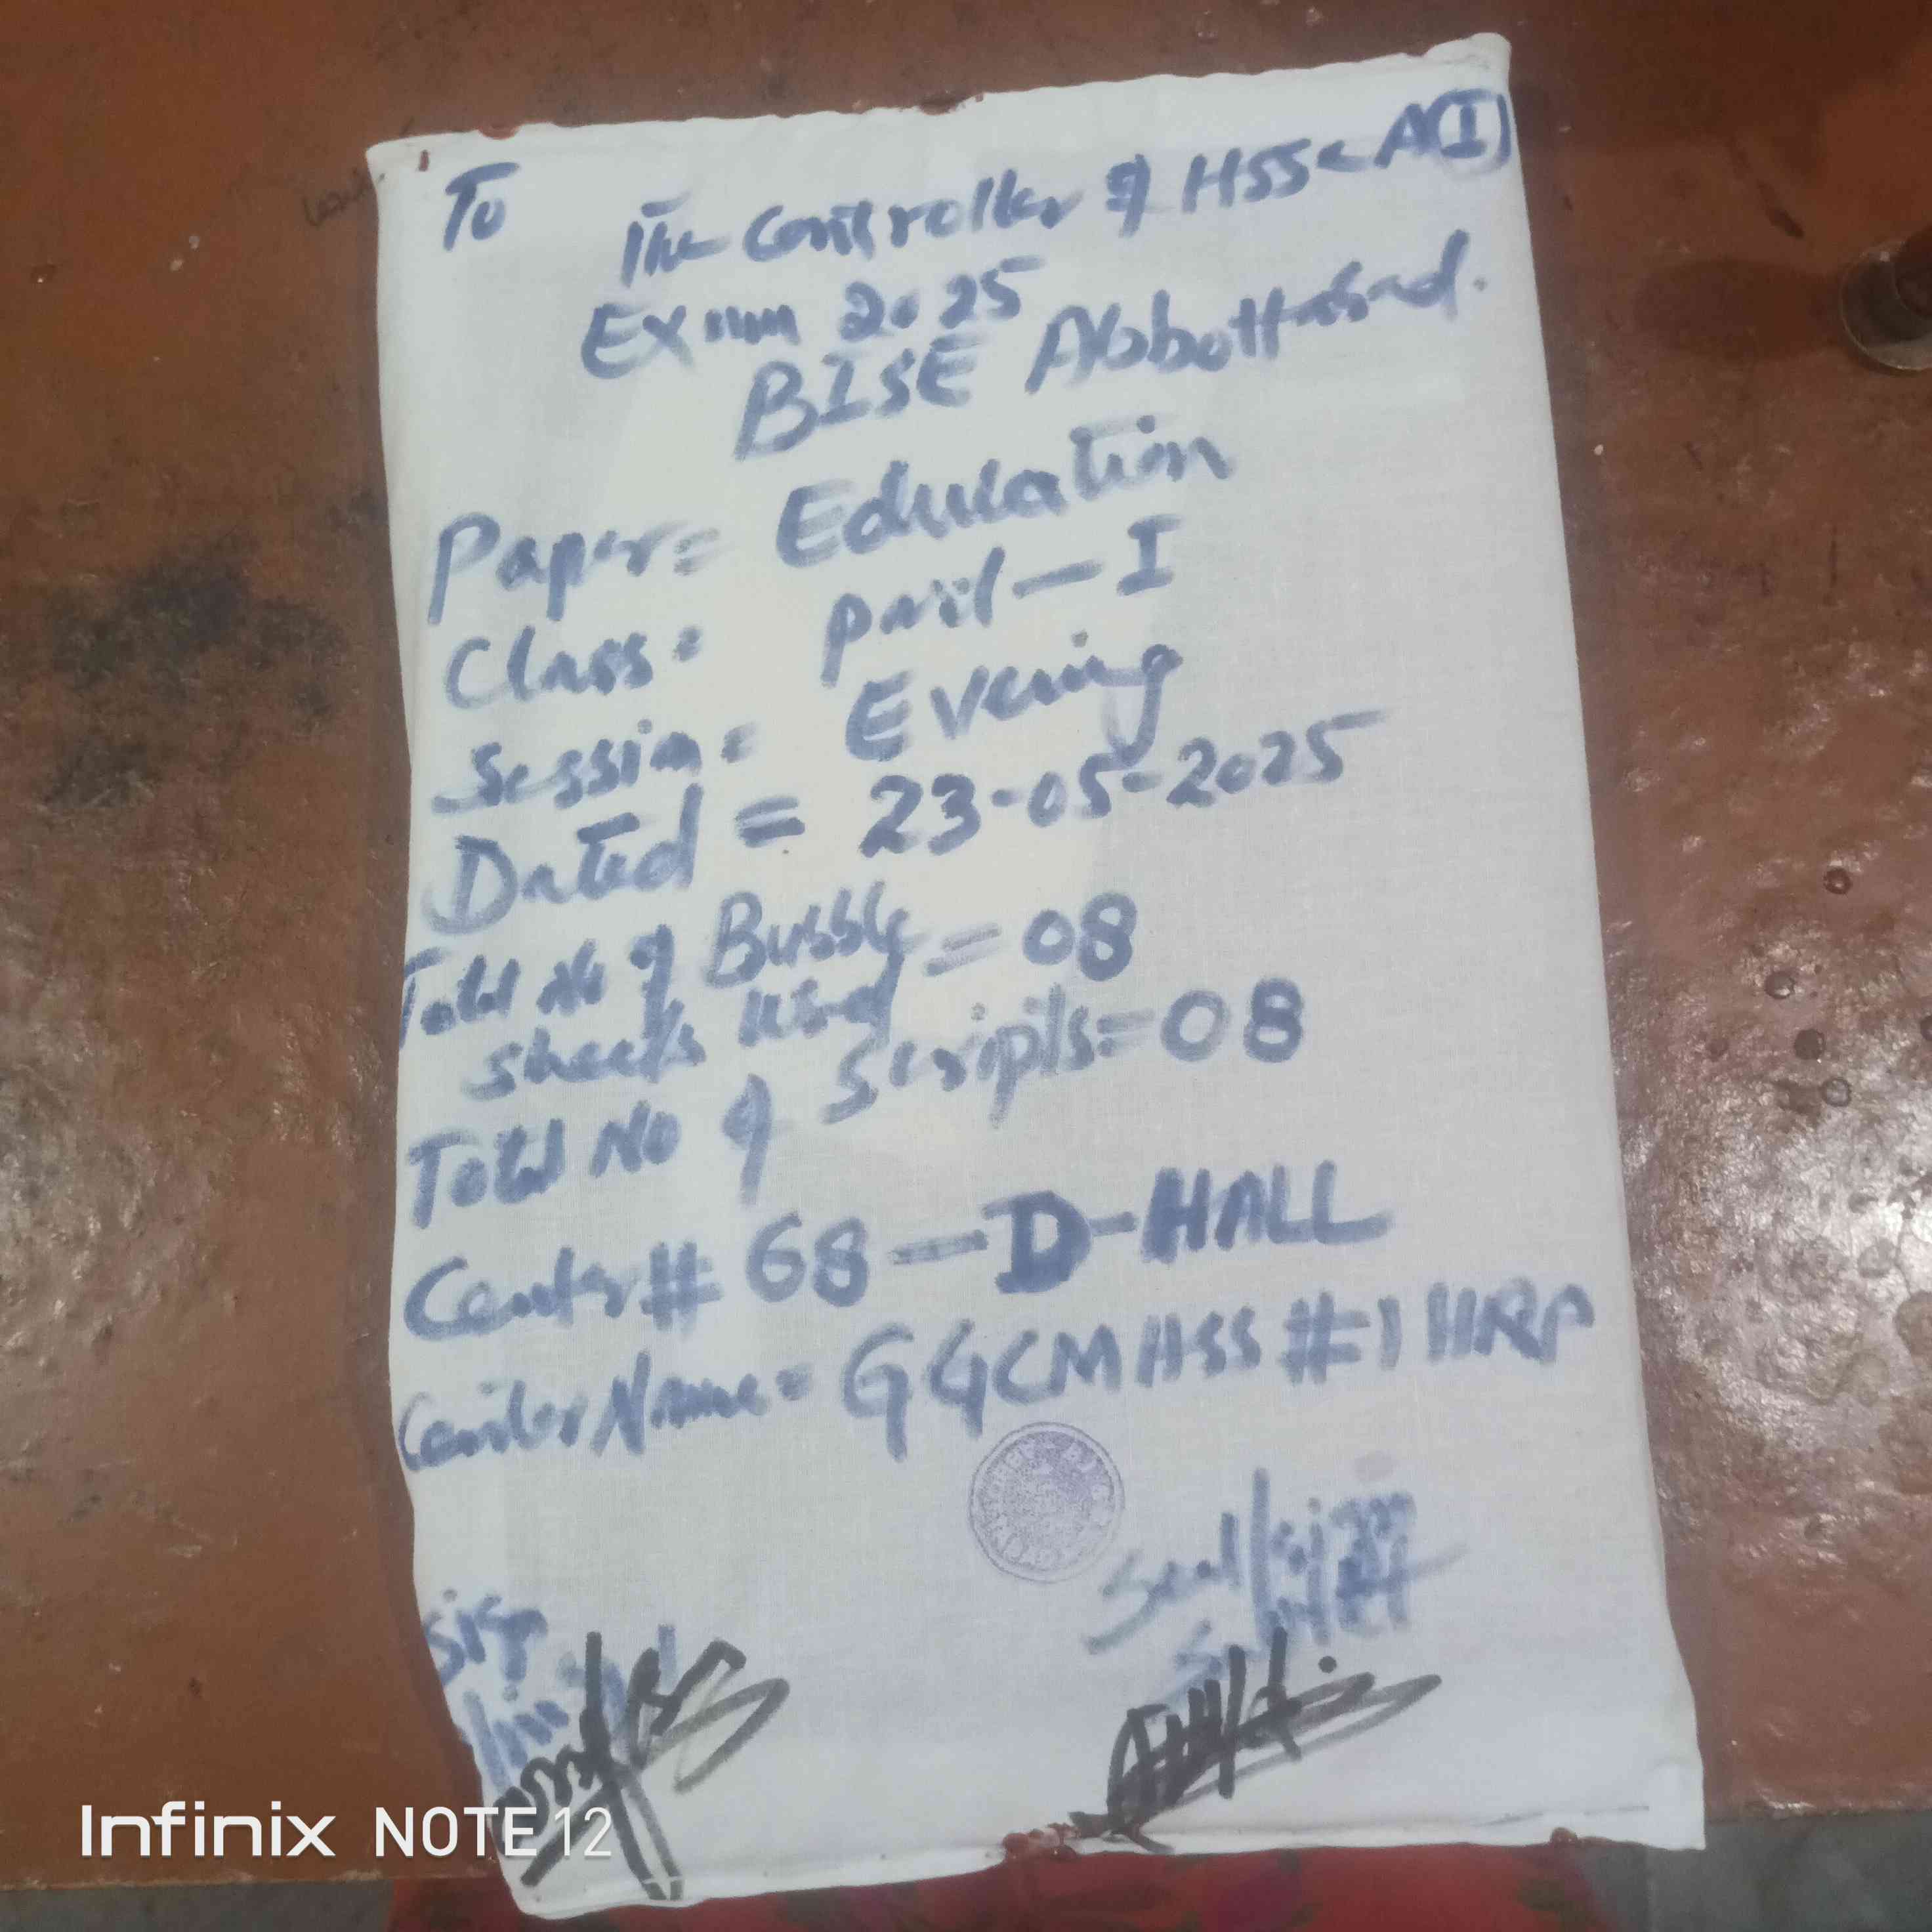 To
The Controller of HSSC A(I)
Exam 2025
BISE Abbottabad.
Paper = Education
Class = part - I
Session = Evening
Dated = 23-05-2025
Total No of Bubble = 08
sheets used
Total No of Scripts = 08
Center # 68 - D - HALL
Center Name = GGCMHSS #1 HRP
Seal/sign
sign
Infinix NOTE 12